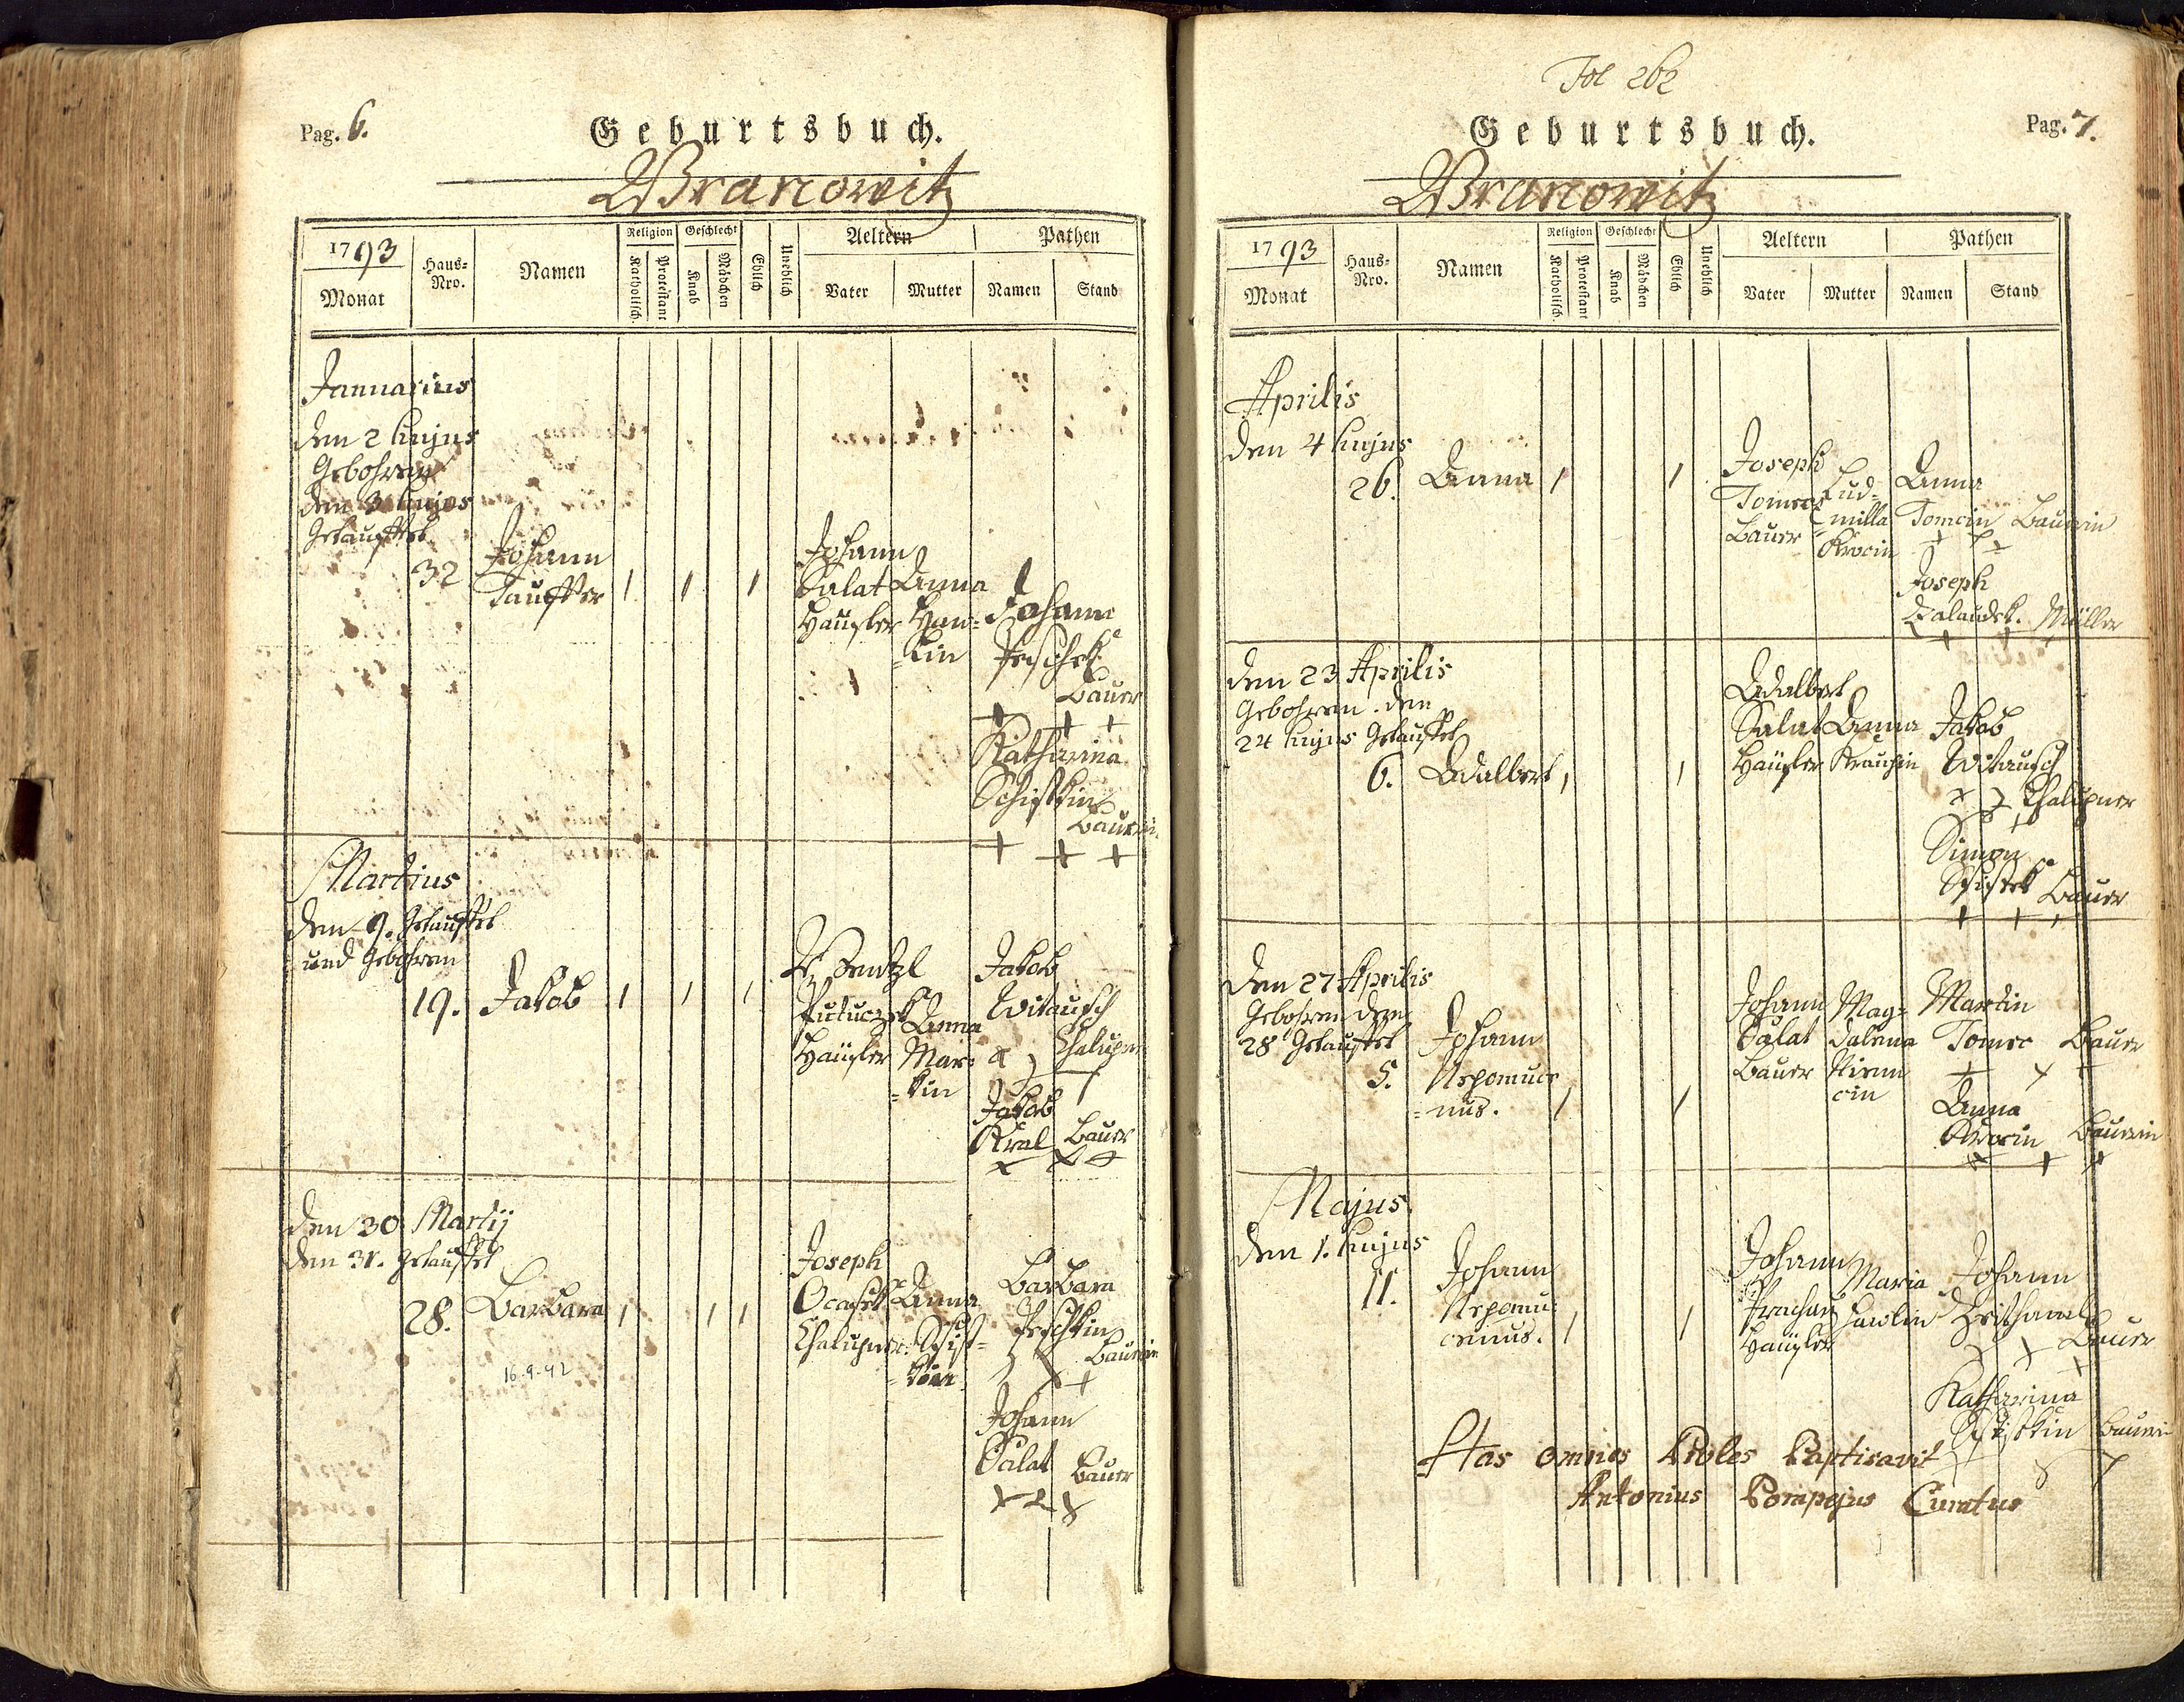 Pag. 6.
Geburtsbuch.
Wranowitz
1793
Monat
Haus-Nro.
Namen
Religion
Katholisch.
Protestant
Geschlecht
Knab
Mädchen
Ehlich
Unehlich
Aeltern
Vater
Mutter
Pathen
Namen
Stand
Januarius
den 2 hujus
Gebohren
den 3 hujus
Getauffet
32
Johann
Tauffer
1 1 1
Johann
Salat
Häusler
Anna
Johann
Peschek
Bauer
+ + +
Katharina
Schistkin
Bäuerin
+ + +
Martius
den 9. Getauffet
und Gebohren
19. Jakob 1 1 1
Wentzl
Häusler
Anna
Mar=
=kin
Jakob
Witausch
Chalupner
Jakob
Kral Bauer
den 30 Martij
den 31. getauffet
28. Barbara 1 1 1
Joseph
Ocasek
Chalupner
Anna
Barbara
Peschkin
Bäuerin
Johann
Salat Bauer
16.9.42
Fol 262
Geburtsbuch.
Pag. 7.
Wranowitz
1793
Monat
Haus-Nro.
Namen
Religion
Katholisch.
Protestant
Geschlecht
Knab
Mädchen
Ehlich
Unehlich
Aeltern
Vater
Mutter
Pathen
Namen
Stand
Aprilis
den 4 hujus
26. Anna 1 1
Joseph
Tomec
Bauer
Lud=
milla
Anna
Tomcin Bäurin
Joseph
Zalaudek. Müller
den 23 Aprilis
Gebohren. den
24 hujus Getauffet
6. Adalbert 1 1
Adalbert
Salat
Häusler
Anna
Jakob
Witausch
Chalupner
Simon
Schistek Bauer
+ + +
den 27 Aprilis
Gebohren den
28 Getauffet
5.
Johann
Nepomuce
=nus. 1 1
Johann
Salat
Bauer
Mag=
dalena
Martin
Tomec Bauer
Anna
Bäurin
Majus
den 1. hujus
11.
Johann
Nepomu=
cenus. 1 1
Johann
Häusler
Maria
Johann
Bauer
Katharina
Schistkin Bäurin
Has omnes Proles Baptisavit
Antonius Pompejus Curatus